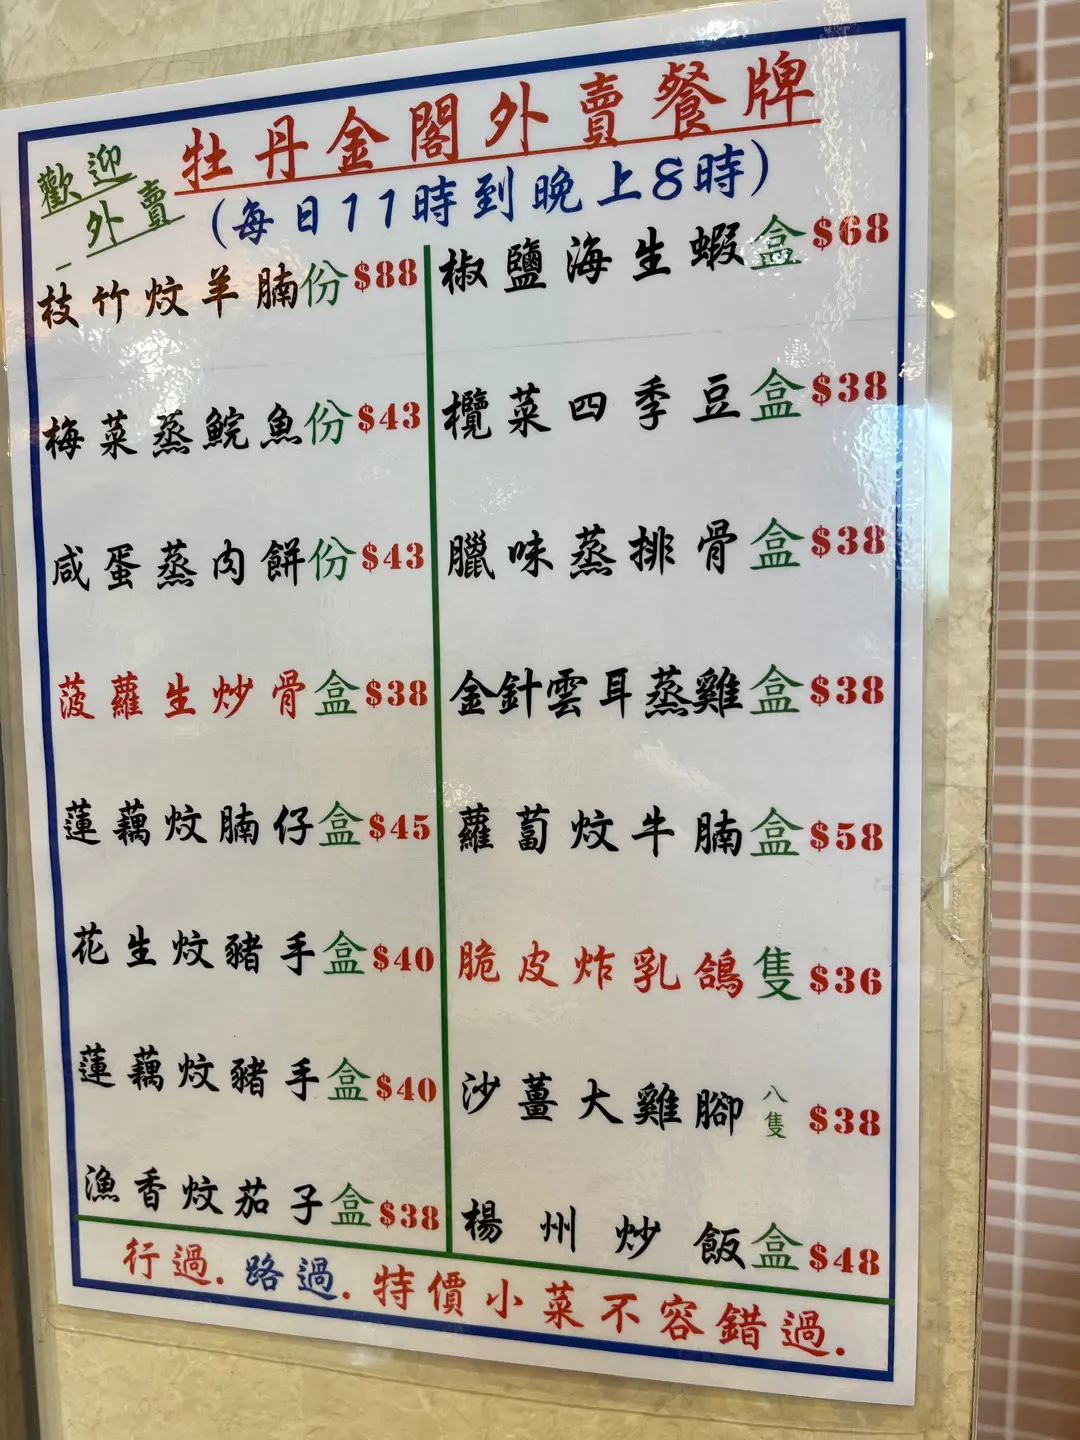 牡丹金閣外賣餐牌
歡迎
外賣
(每日11時到晚上8時)
枝竹炆羊腩份$88
梅菜蒸鯇魚份$43
咸蛋蒸肉餅份$43
菠蘿生炒骨盒$38
蓮藕炆腩仔盒$45
花生炆豬手盒$40
蓮藕炆豬手盒$40
漁香炆茄子盒$38
椒鹽海生蝦盒$68
欖菜四季豆盒$38
臘味蒸排骨盒$38
金針雲耳蒸雞盒$38
蘿蔔炆牛腩盒$58
脆皮炸乳鴿隻$36
沙薑大雞腳八隻$38
楊州炒飯盒$48
行過.路過.特價小菜不容錯過.